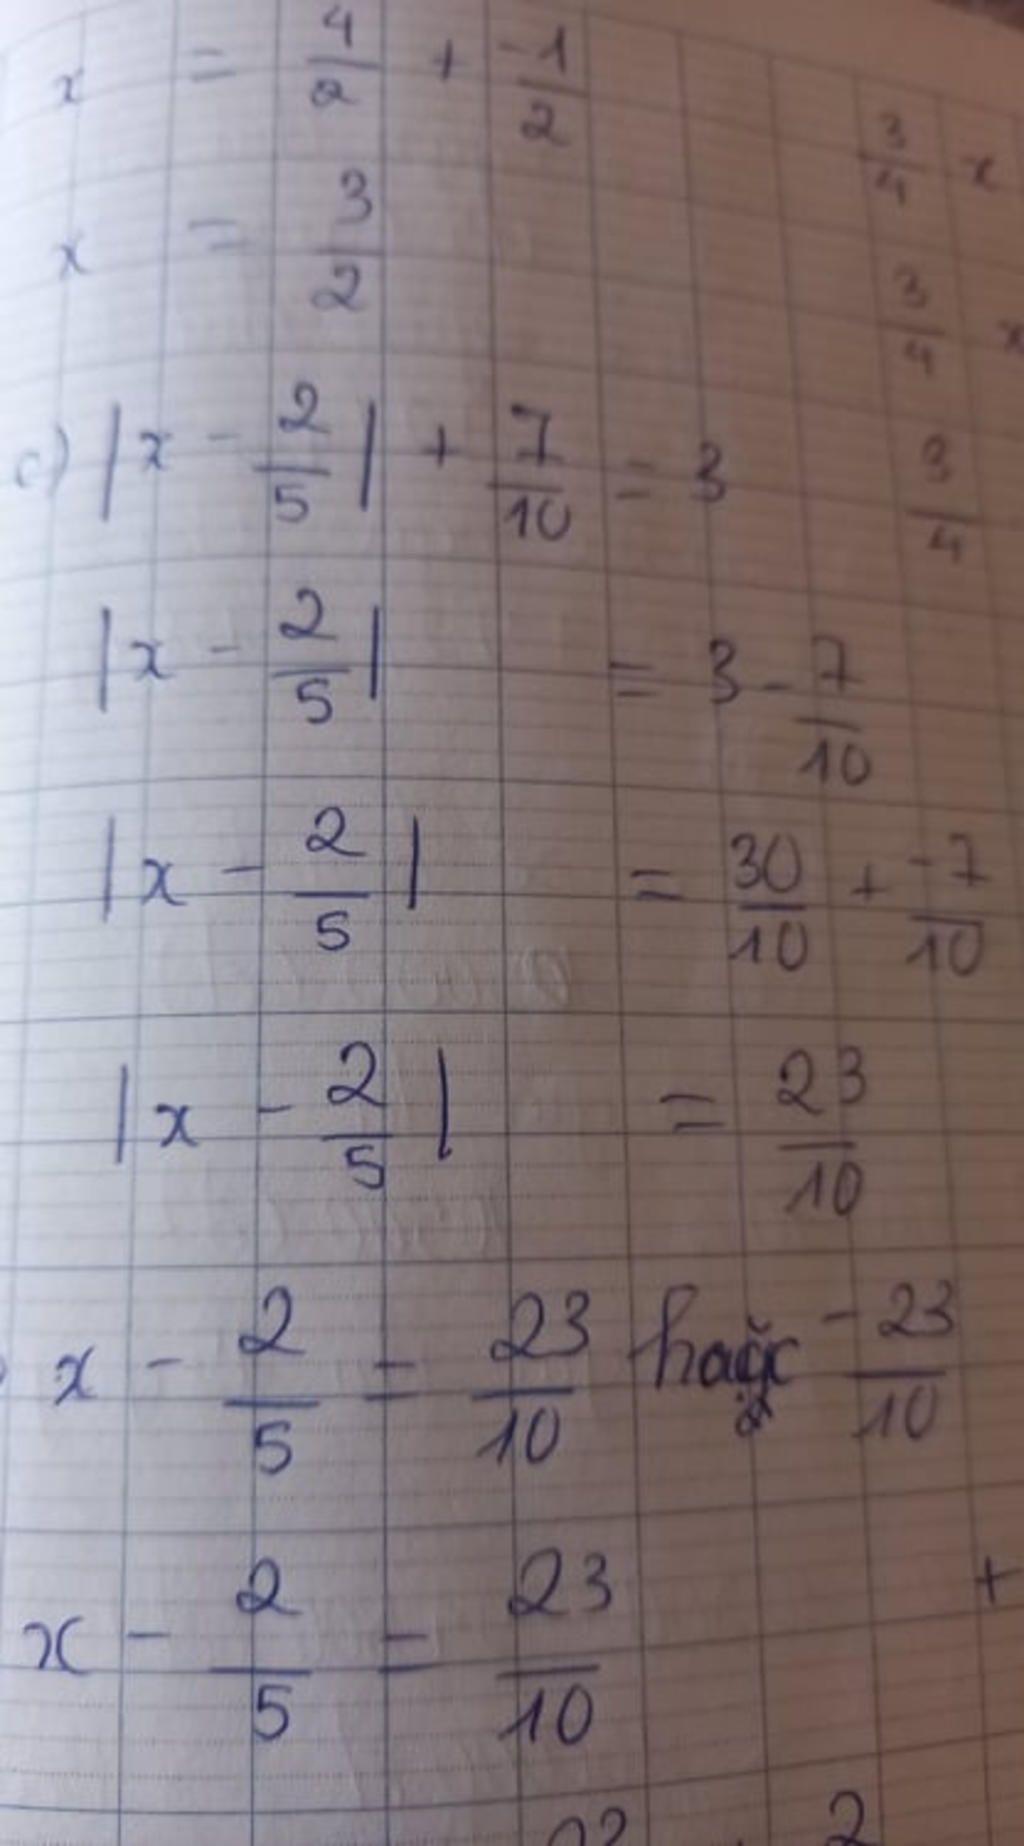 x = 4/2 + -1/2
3/4 x
x = 3/2
3/4 x
c) |x - 2/5| + 7/10 = 3
3/4
|x - 2/5| = 3 - 7/10
|x - 2/5| = 30/10 + -7/10
|x - 2/5| = 23/10
x - 2/5 = 23/10 hoặc -23/10
x - 2/5 = 23/10 +